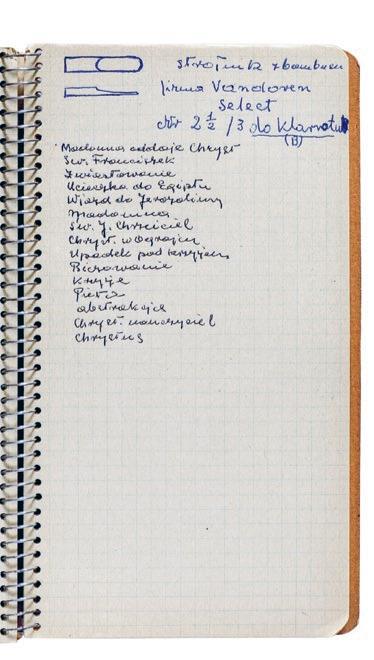 stroik z bambusu
firma Vandoren
Select
Nr 2 1/2 / 3 do klarnetu
(B)
Madonna oddaje Chryst
Św. Franciszek
Zwiastowanie
Ucieczka do Egiptu
Wjazd do Jerozolimy
Madonna
Św. J. Chrzciciel
Chryst. w Ogrojcu
Upadek pod krzyżem
Biczowanie
Krzyże
Pieta
abstrakcja
Chryst. nauczyciel
Chrystus